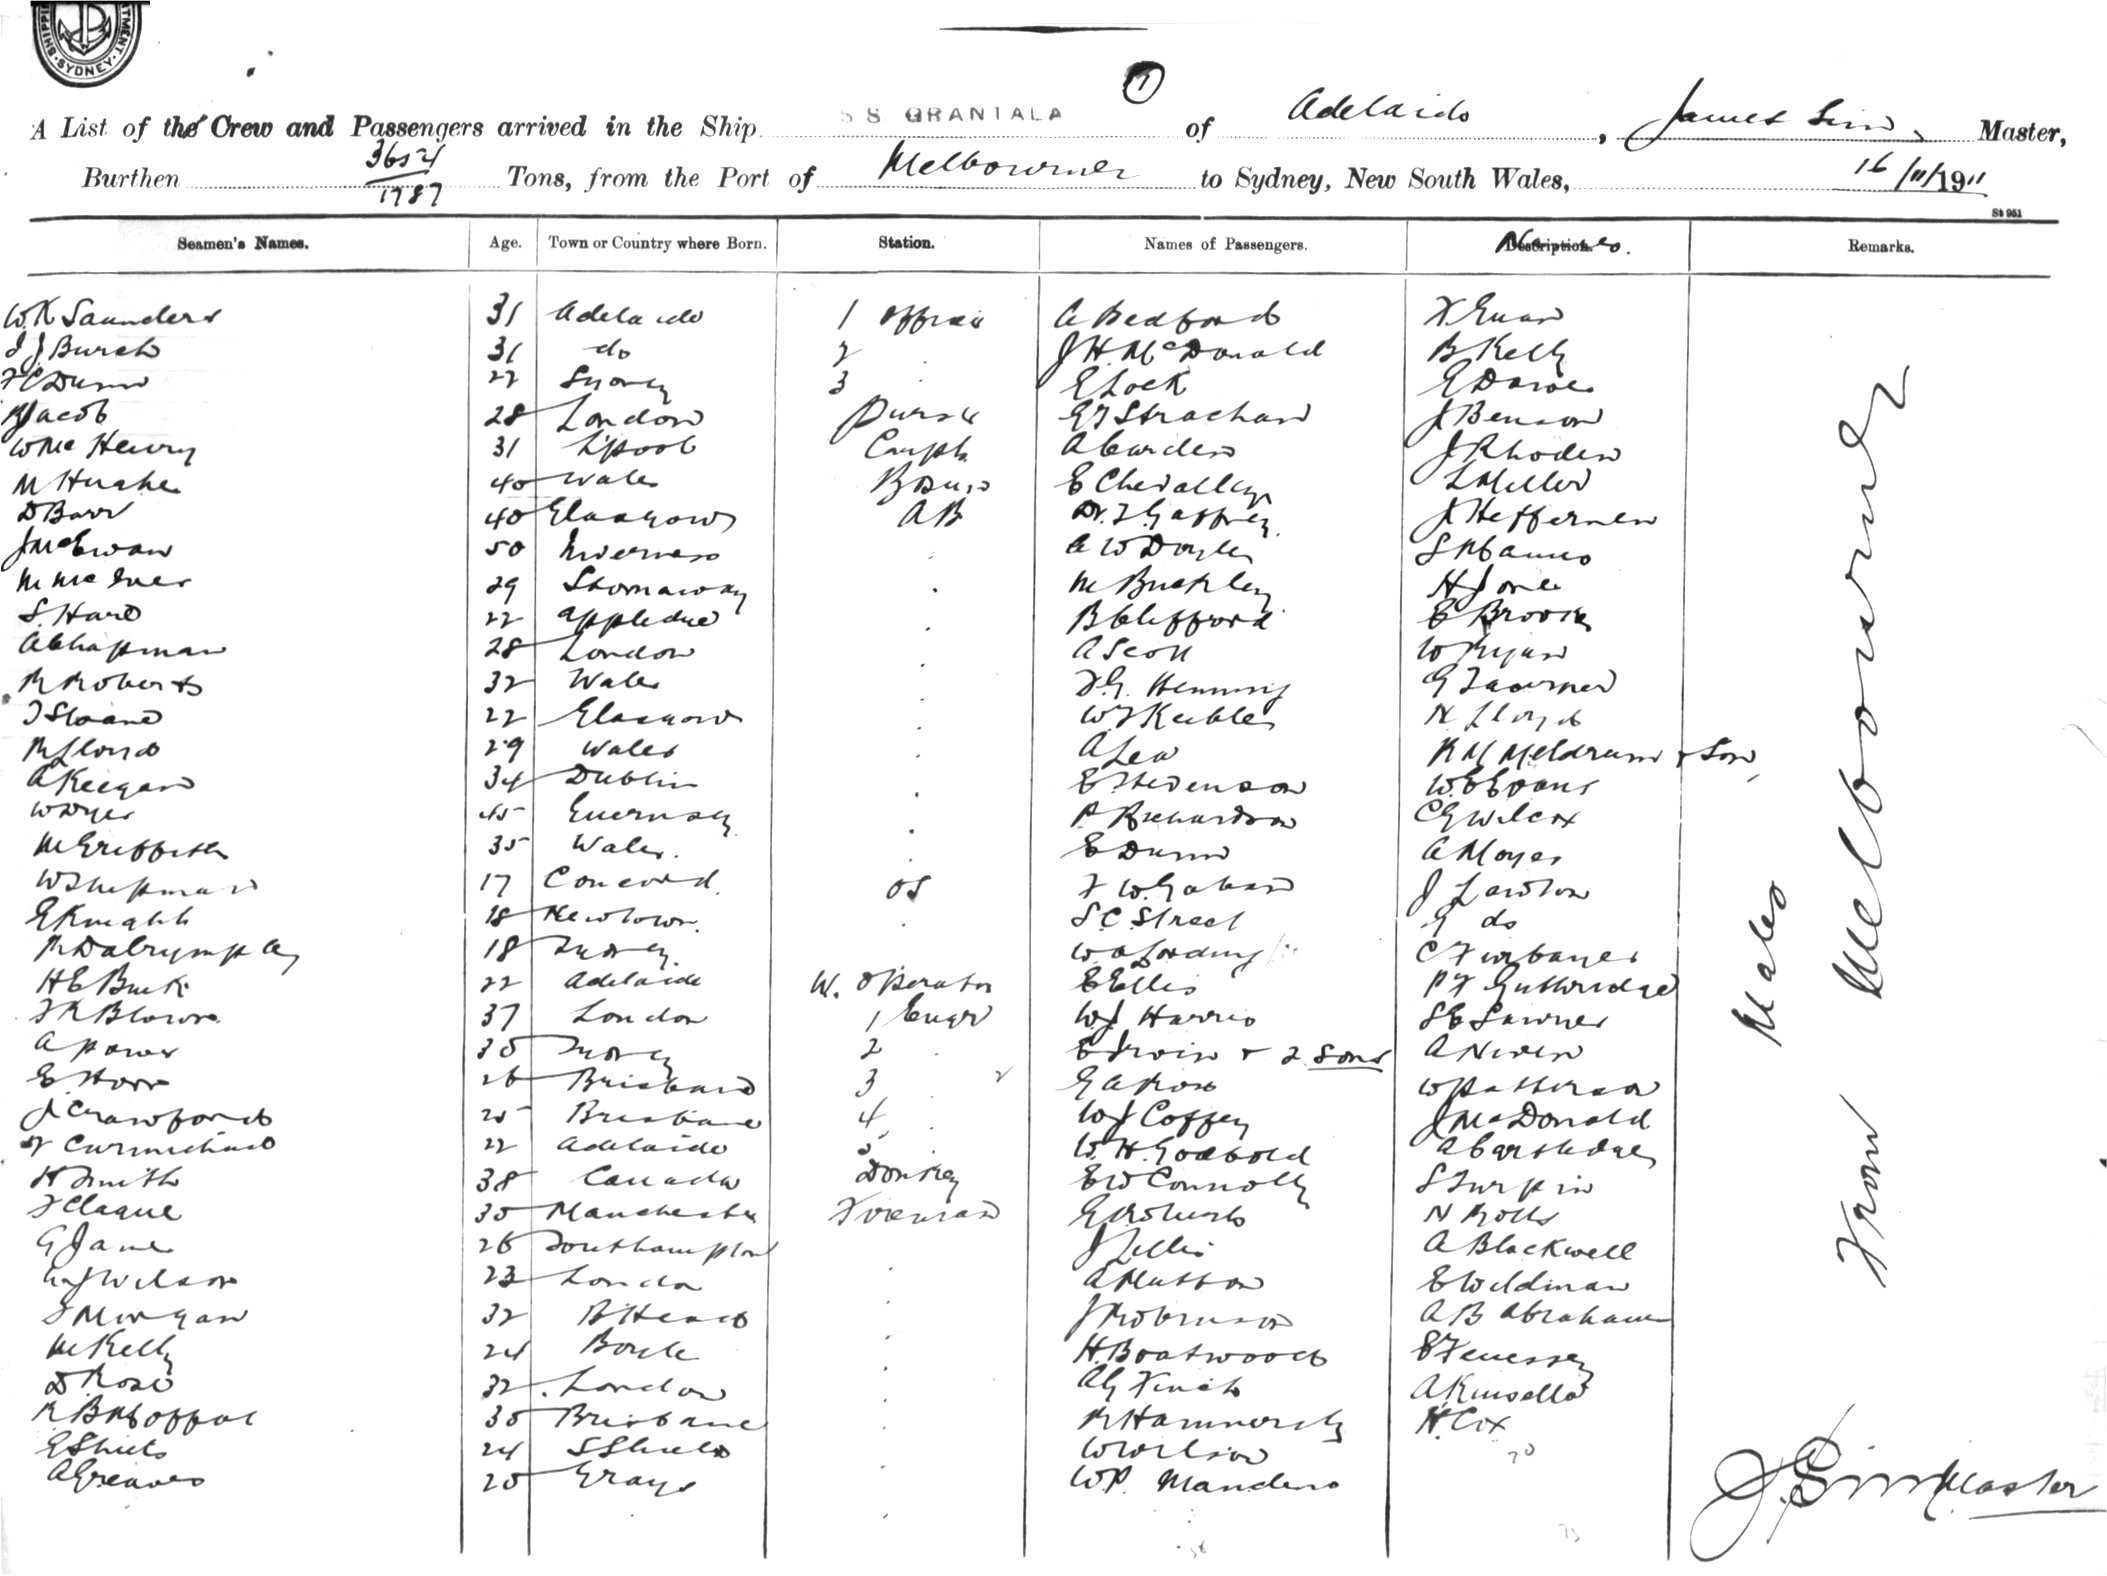 SHIPPING DEPARTMENT SYDNEY
1
A List of the Crew and Passengers arrived in the Ship S S GRANTALA of Adelaide, James Sim, Master,
Burthen 3654/1787 Tons, from the Port of Melbourne to Sydney, New South Wales, 16/11/1911
St 951
Seamen's Names. Age. Town or Country where Born. Station. Names of Passengers. Names. Remarks.
W R Saunders 31 Adelaide 1 Officer A Bedford F Evans
J J Burch 31 do 2 J H McDonald B Kelly
F C Dunn 22 Sydney 3 E Lock E Dawe
R Jacob 28 London Purser E F Strachan J Benson
W Mc Henry 31 L'pool Carptr A Carden J Rhoden
M Hughes 40 Wales Bosun E Chevalley L Miller
D Barr 40 Glasgow AB Dr. T Gaffney J Heffernen
J McEwan 50 Inverness A W Doyle
M McIver 29 Stornaway M Buckley H Jone
S. Hare 22 Appledue B Clifford E Brooks
A Chapman 28 London A Scott W Ryan
R Roberts 32 Wales F. G. Henning G Taverner
T Sloane 22 Glasgow W T Keeble N Lloyd
R Lloyd 29 Wales A Lea R M Meldrum & Son
A Keegan 34 Dublin E Stevenson W. E Evans
W Dyer 45 Guernsey P Richardson C G Wilcox
M Griffiths 35 Wales. E Dunn A Moyes
W Shipman 17 Concord. OS F W. Gahan J Lawton
E Knight 18 Newtown. S. C. Street G do
R Dalrymple 18 Sydney W A Lording C Fairbanes
H E Buck 22 Adelaide W. Operator E Ellis P F Guthridge
F R Blown 37 London 1 Engr W J Harris S E Sawner
A Power 35 Sydney 2 E Irwin & 2 Sons A Niven
E Horr 26 Brisbane 3 G A Ross W Patterson
J Crawford 25 Brisbane 4 W J Coffey J McDonald
F Carmichael 22 Adelaide 5 W. H. Godbold A Carthedge
H Smith 38 Canada Donkey E W Connolly S Turpin
F Clague 35 Manchester Fireman G Roberts N Rolls
G Jane 26 Southampton J Lillis A Blackwell
W J Wilson 23 London A Mutton E Wildman
T Morgan 32 B'Head J Robinson A B Abraham
M Kelly 24 Boyle H. Boatwood E Fenessey
D Rose 32 London A G Finch A Kinsella
R B Moffat 35 Brisbane R Hammersly H. Cox
E Shiels 24 S Shields W Wilson
A Greaves 25 Grays W P. Manders
Males From Melbourne
J. Sim Master